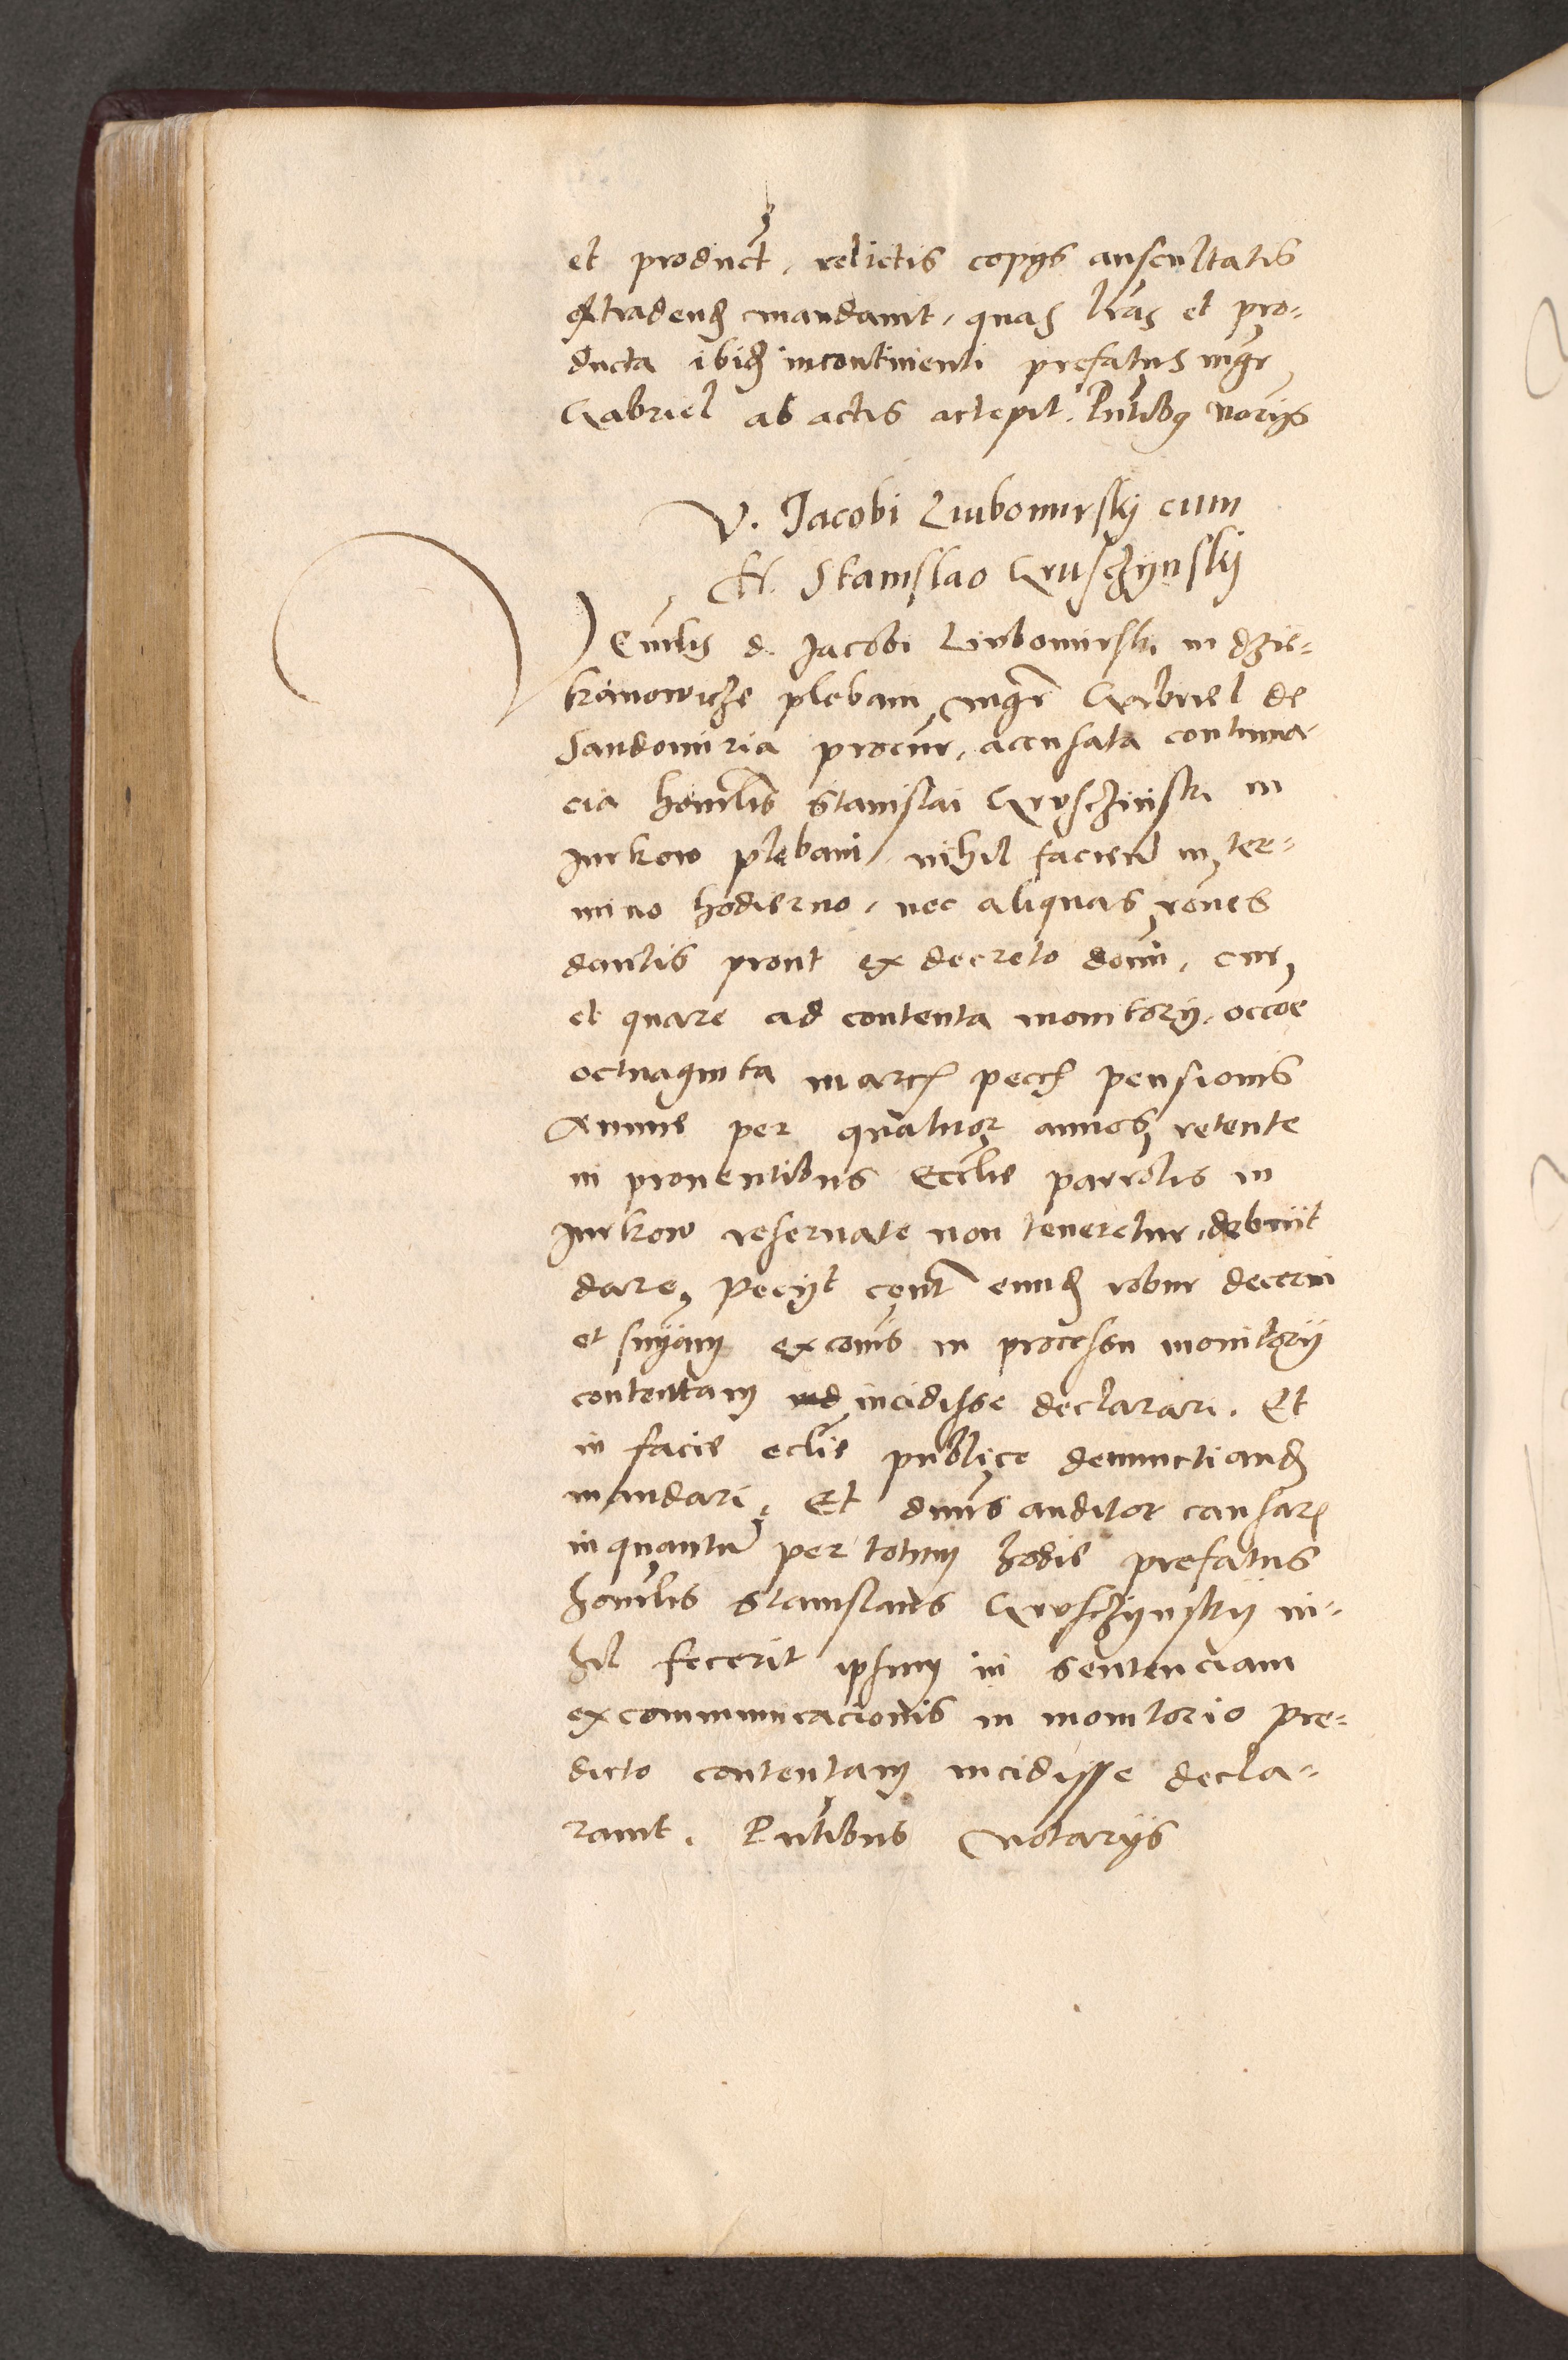 et product, relictis copys auscultatis
extradend mandavit, quas lras et pro-
ducta ibid incontinenti prefatus mgr
Gabriel ab actis accepit. Pntibus noriys
V. Jacobi Liubomirsky cum
H. Stanislao Gruschynsky
Venlis d. Jacobi Liubomirski in dzie-
kanowicze plebani, mgr Gabriel de
Sandomiria procur, accusata contuma-
cia honilis Stanislai Gruschinski in
Jurkow plebani, nihil faciend in ter-
mino hodierno, nec aliquas rones
dantis prout ex decreto domi, cur
et quare ad contenta monitory, occoe
octuaginta marc pecc pensionis
Annue per quatuor annos retente
in proventibus Ecclie parrolis in
Jurkow reservate non teneretur, debuit
dare, Pecyt cont eund robur decerni
et snyam excomis in processu monitory
contentam incidisse declarari. Et
in facie eclie publice denunctiand
mandari. Et dnus auditor causar
in quantu per totum hodie prefatus
honilis Stanislaus Gruschynsky ni-
hil fecerit ipsum in sentenciam
excommunicacionis in monitorio pre-
dicto contentam incidisse decla-
ravit. Pntibus Notarys